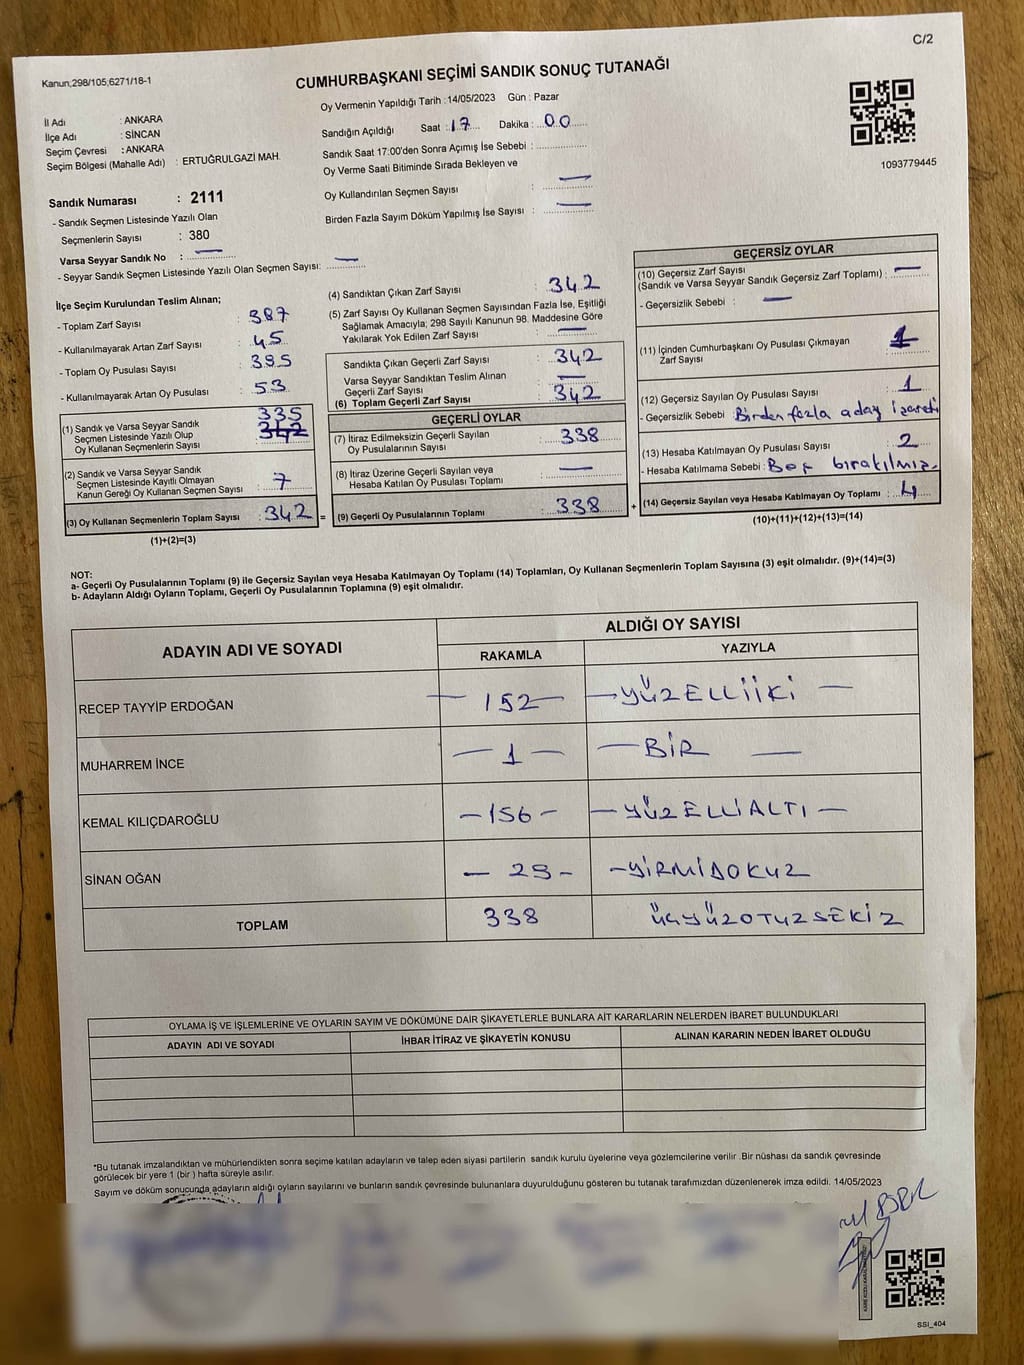 C/2
Kanun;298/105,6271/18-1
CUMHURBAŞKANI SEÇİMİ SANDIK SONUÇ TUTANAĞI
Oy Vermenin Yapıldığı Tarih :14/05/2023 Gün : Pazar
İl Adı : ANKARA
İlçe Adı : SİNCAN
Seçim Çevresi : ANKARA
Seçim Bölgesi (Mahalle Adı) : ERTUĞRULGAZİ MAH.
Sandığın Açıldığı Saat : 17 Dakika : 00
Sandık Saat 17:00'den Sonra Açımış İse Sebebi :
Oy Verme Saati Bitiminde Sırada Bekleyen ve
Oy Kullandırılan Seçmen Sayısı : —
Birden Fazla Sayım Döküm Yapılmış İse Sayısı : —
1093779445
Sandık Numarası : 2111
- Sandık Seçmen Listesinde Yazılı Olan
Seçmenlerin Sayısı : 380
Varsa Seyyar Sandık No : —
- Seyyar Sandık Seçmen Listesinde Yazılı Olan Seçmen Sayısı: —
İlçe Seçim Kurulundan Teslim Alınan;
- Toplam Zarf Sayısı : 387
- Kullanılmayarak Artan Zarf Sayısı : 45
- Toplam Oy Pusulası Sayısı : 395
- Kullanılmayarak Artan Oy Pusulası : 53
(1) Sandık ve Varsa Seyyar Sandık
Seçmen Listesinde Yazılı Olup
Oy Kullanan Seçmenlerin Sayısı : 335 342
(2) Sandık ve Varsa Seyyar Sandık
Seçmen Listesinde Kayıtlı Olmayan
Kanun Gereği Oy Kullanan Seçmen Sayısı : 7
(3) Oy Kullanan Seçmenlerin Toplam Sayısı : 342 =
(1)+(2)=(3)
(4) Sandıktan Çıkan Zarf Sayısı : 342
(5) Zarf Sayısı Oy Kullanan Seçmen Sayısından Fazla İse, Eşitliği
Sağlamak Amacıyla; 298 Sayılı Kanunun 98. Maddesine Göre
Yakılarak Yok Edilen Zarf Sayısı : —
Sandıkta Çıkan Geçerli Zarf Sayısı : 342
Varsa Seyyar Sandıktan Teslim Alınan
Geçerli Zarf Sayısı : —
(6) Toplam Geçerli Zarf Sayısı : 342
GEÇERLİ OYLAR
(7) İtiraz Edilmeksizin Geçerli Sayılan
Oy Pusulalarının Sayısı : 338
(8) İtiraz Üzerine Geçerli Sayılan veya
Hesaba Katılan Oy Pusulası Toplamı : —
(9) Geçerli Oy Pusulalarının Toplamı : 338 +
GEÇERSİZ OYLAR
(10) Geçersiz Zarf Sayısı
(Sandık ve Varsa Seyyar Sandık Geçersiz Zarf Toplamı) : —
- Geçersizlik Sebebi : —
(11) İçinden Cumhurbaşkanı Oy Pusulası Çıkmayan
Zarf Sayısı : 1
(12) Geçersiz Sayılan Oy Pusulası Sayısı : 1
- Geçersizlik Sebebi : Birden fazla aday işareti
(13) Hesaba Katılmayan Oy Pusulası Sayısı : 2
- Hesaba Katılmama Sebebi : Boş bırakılmış.
(14) Geçersiz Sayılan veya Hesaba Katılmayan Oy Toplamı : 4
(10)+(11)+(12)+(13)=(14)
NOT:
a- Geçerli Oy Pusulalarının Toplamı (9) ile Geçersiz Sayılan veya Hesaba Katılmayan Oy Toplamı (14) Toplamları, Oy Kullanan Seçmenlerin Toplam Sayısına (3) eşit olmalıdır. (9)+(14)=(3)
b- Adayların Aldığı Oyların Toplamı, Geçerli Oy Pusulalarının Toplamına (9) eşit olmalıdır.
ADAYIN ADI VE SOYADI ALDIĞI OY SAYISI
RAKAMLA YAZIYLA
RECEP TAYYİP ERDOĞAN — 152 — — YÜZELLİİKİ —
MUHARREM İNCE — 1 — — BİR —
KEMAL KILIÇDAROĞLU — 156 — — YÜZELLİALTI —
SİNAN OĞAN — 29 - - YİRMİDOKUZ
TOPLAM 338 ÜÇYÜZOTUZSEKİZ
OYLAMA İŞ VE İŞLEMLERİNE VE OYLARIN SAYIM VE DÖKÜMÜNE DAİR ŞİKAYETLERLE BUNLARA AİT KARARLARIN NELERDEN İBARET BULUNDUKLARI
ADAYIN ADI VE SOYADI İHBAR İTİRAZ VE ŞİKAYETİN KONUSU ALINAN KARARIN NEDEN İBARET OLDUĞU
*Bu tutanak imzalandıktan ve mühürlendikten sonra seçime katılan adayların ve talep eden siyasi partilerin sandık kurulu üyelerine veya gözlemcilerine verilir .Bir nüshası da sandık çevresinde
görülecek bir yere 1 (bir ) hafta süreyle asılır.
Sayım ve döküm sonucunda adayların aldığı oyların sayılarını ve bunların sandık çevresinde bulunanlara duyurulduğunu gösteren bu tutanak tarafımızdan düzenlenerek imza edildi. 14/05/2023
SSI_404